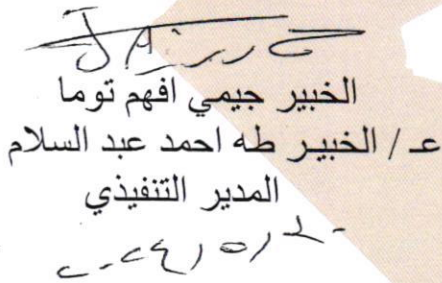 الخبير جيمي افهم توما
عـ / الخبيـر طه احمد عبد السلام
المدير التنفيذي
٢٠٢٤/٥/٢٠